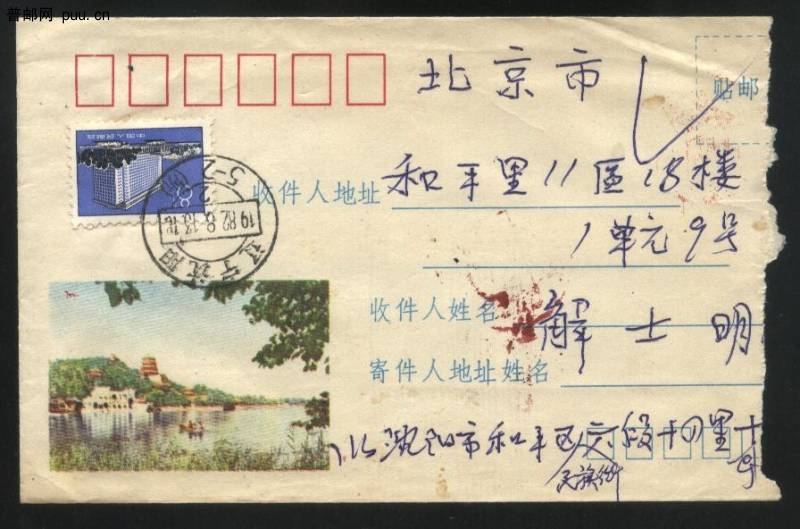 普邮网 puu.cn
北京市
贴邮
中国人民邮政
收件人地址 和平里11區18楼
1单元9号
1982.8.13.18
辽宁沈阳
收件人姓名 解士明
寄件人地址姓名
沈阳市和平区六段十四里十号
民族街